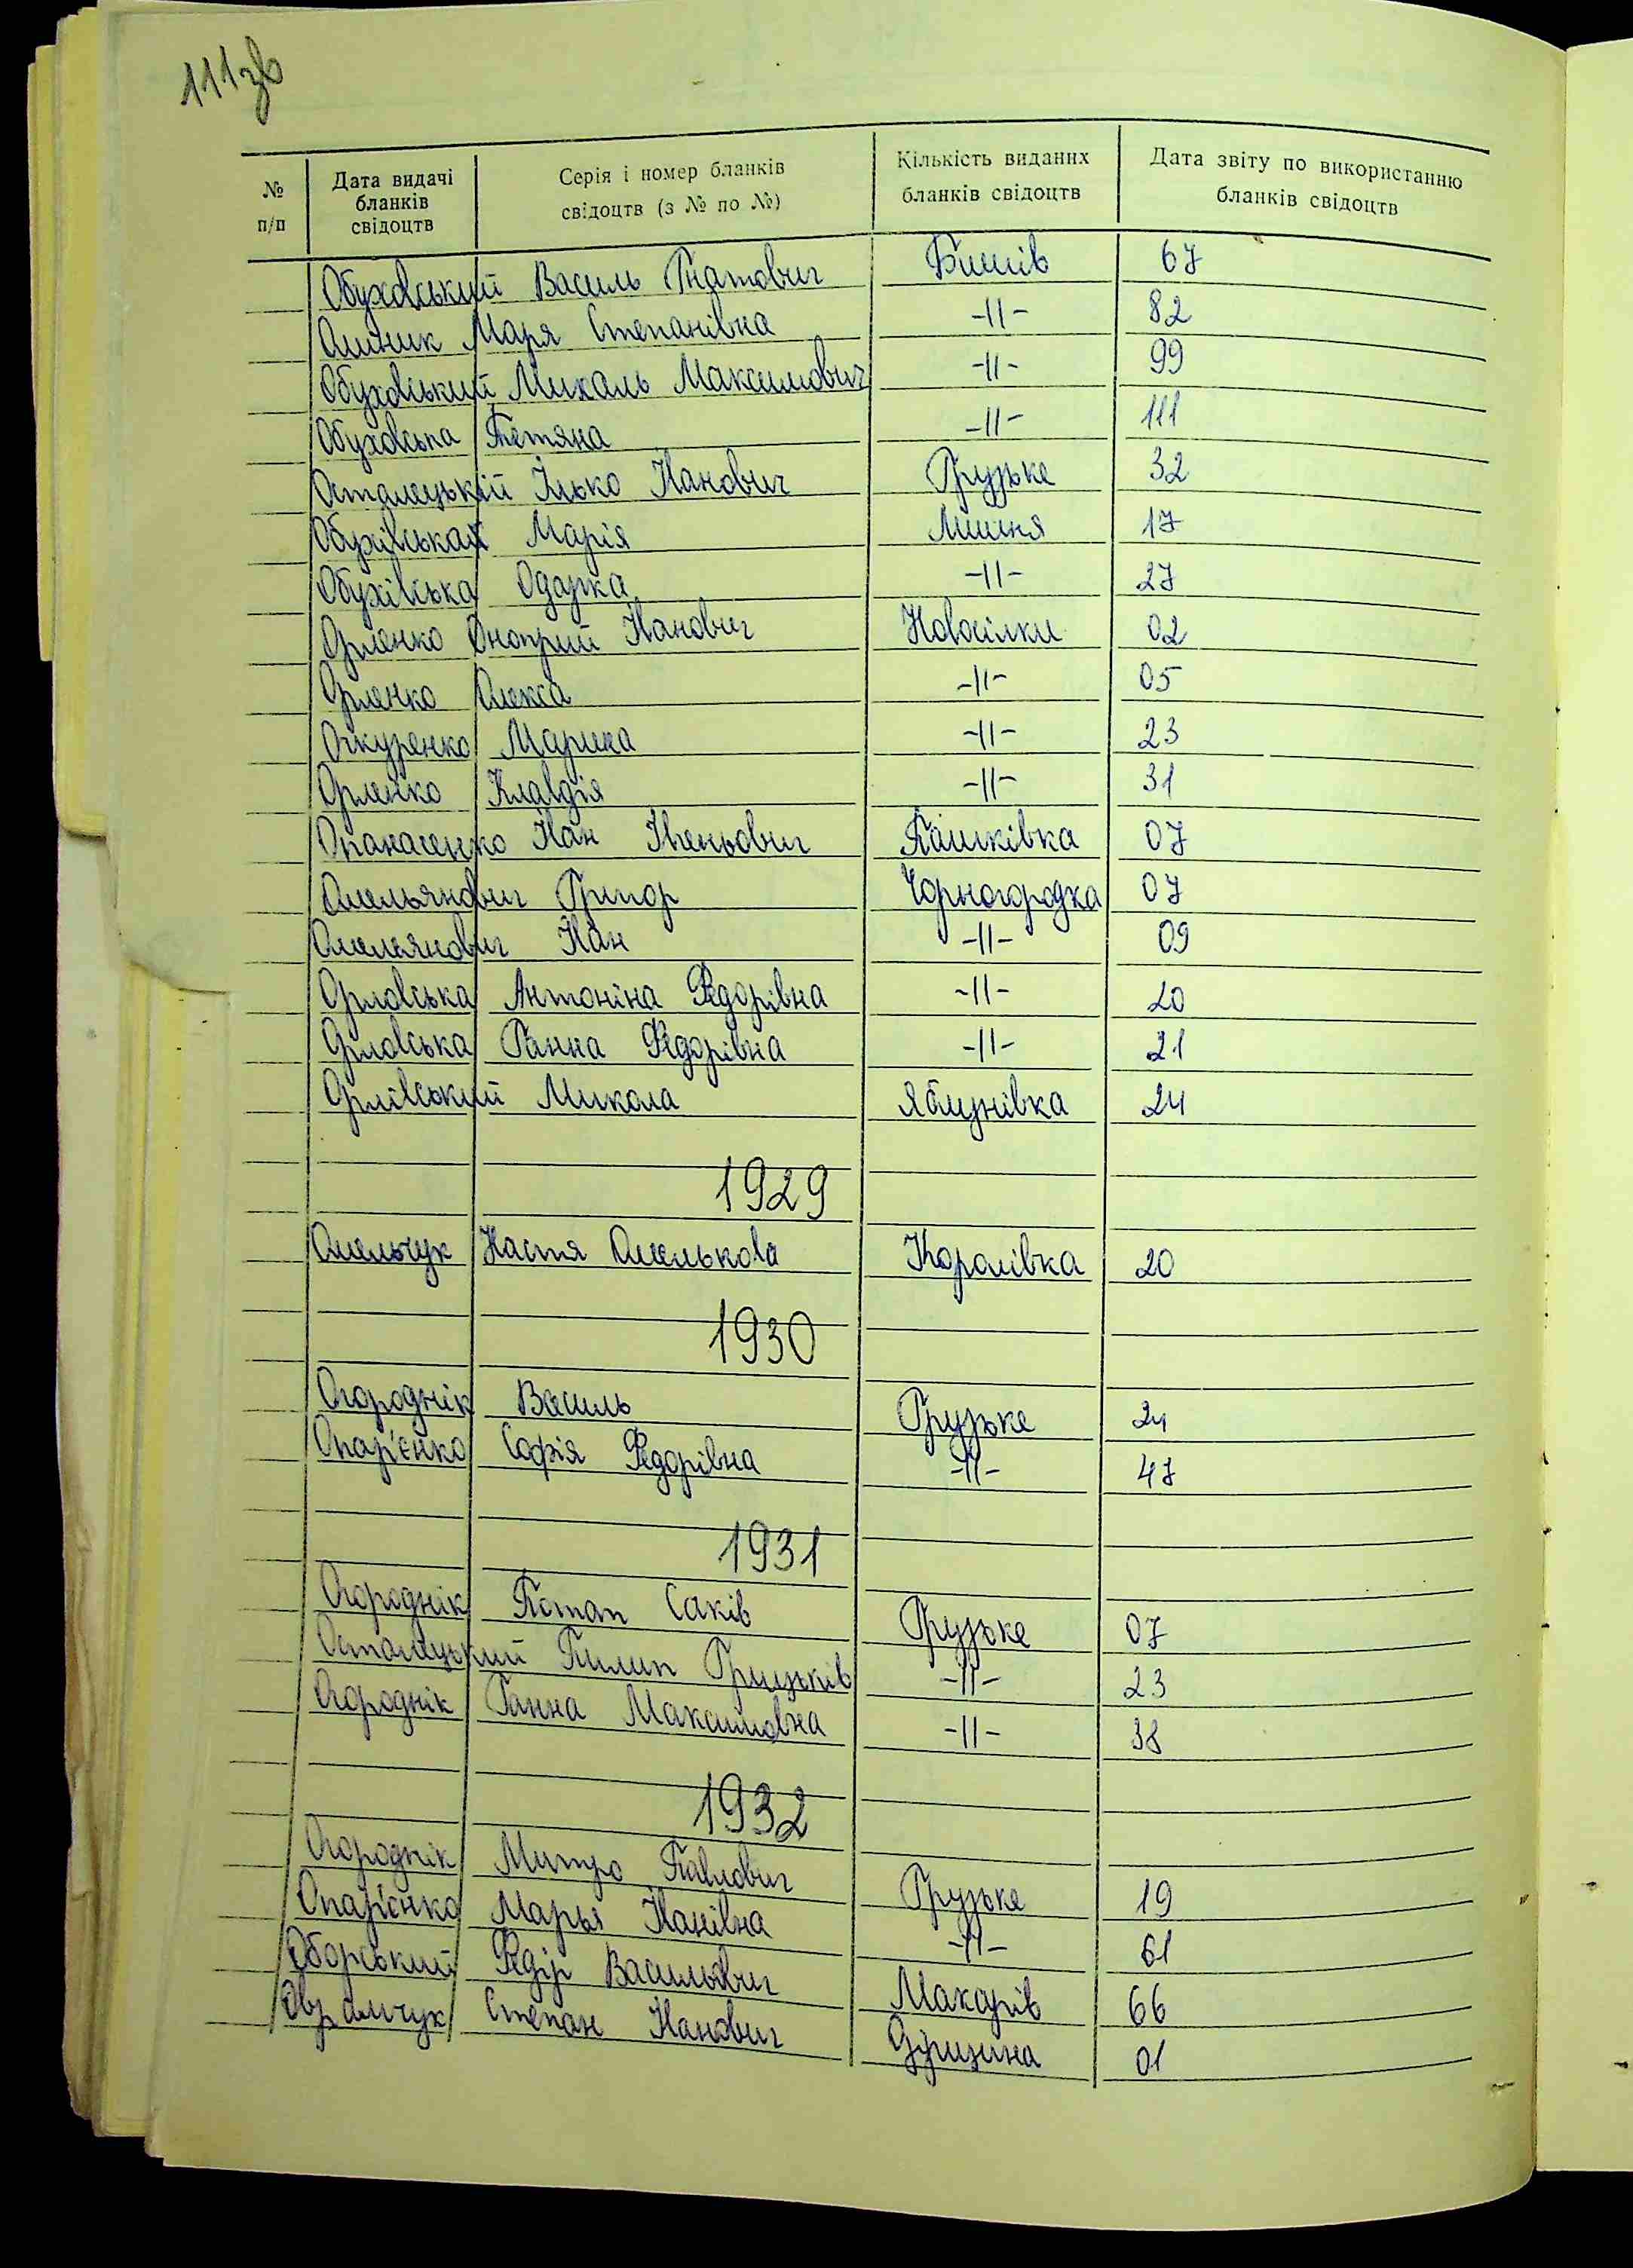 111зв
№ п/п Дата видачі бланків свідоцтв Серія і номер бланків свідоцтв (з № по №) Кількість виданих бланків свідоцтв Дата звіту по використанню бланків свідоцтв
Обуховський Василь Гнатович Бишів 67
Олиник Маря Степанівна -||- 82
Обуховський Михаль Максимович -||- 99
Обуховська Тетяна -||- 111
Осталецький Ілько Іванович Грузьке 32
Обухівськай Марія Лишня 17
Обухівська Одарка -||- 27
Орленко Оноприй Іванович Новосілки 02
Орленко Олекса -||- 05
Очкуренко Марина -||- 23
Орленко Клавдія -||- 31
Опанасенко Іван Івеньович Пашківка 07
Омельянович Григор Чорногородка 07
Омелянович Іван -||- 09
Орловська Антоніна Федорівна -||- 20
Орловська Ганна Федорівна -||- 21
Орлівський Микола Яблунівка 24
1929
Омельчук Настя Омелькова Королівка 20
1930
Огороднік Василь Грузьке 24
Опар'єнко Софія Федорівна -||- 47
1931
Огороднік Потап Саків Грузьке 07
Осталецький Пилип Грицьків -||- 23
Огороднік Ганна Максимовна -||- 38
1932
Огороднік Митро Павлович Грузьке 19
Опар'єнко Марья Іванівна -||- 61
Оборський Федір Васильович Макарів 66
Степан Іванович 01